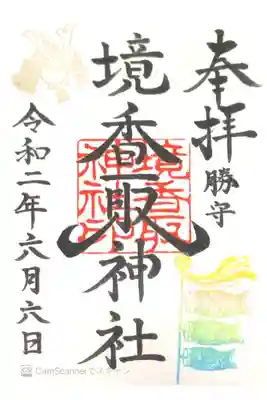 奉拝
勝守
境香取神社
境香取
神社印
令和二年六月六日
CamScannerでスキャン